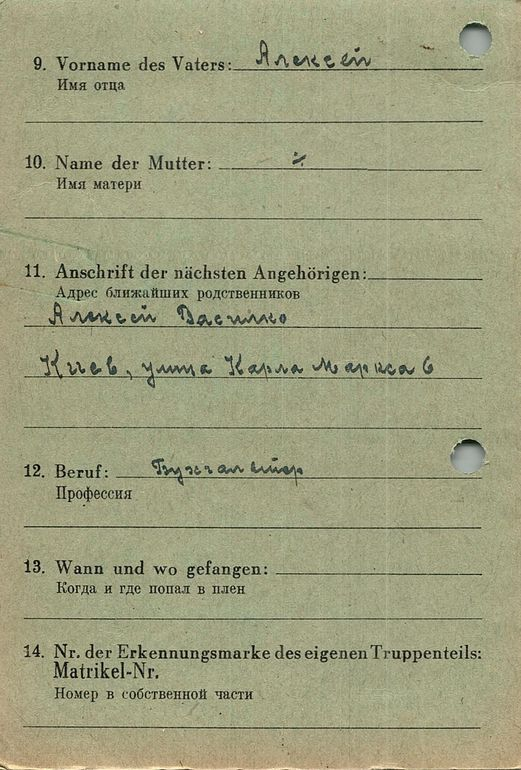 9. Vorname des Vaters: Алексей
Имя отца
10. Name der Mutter: ⁒
Имя матери
11. Anschrift der nächsten Angehörigen:
Адрес ближайших родственников
Алексей Василко
Киев, улица Карла Маркса 6
12. Beruf: Бухгалтер
Профессия
13. Wann und wo gefangen:
Когда и где попал в плен
14. Nr. der Erkennungsmarke des eigenen Truppenteils:
Matrikel-Nr.
Номер в собственной части